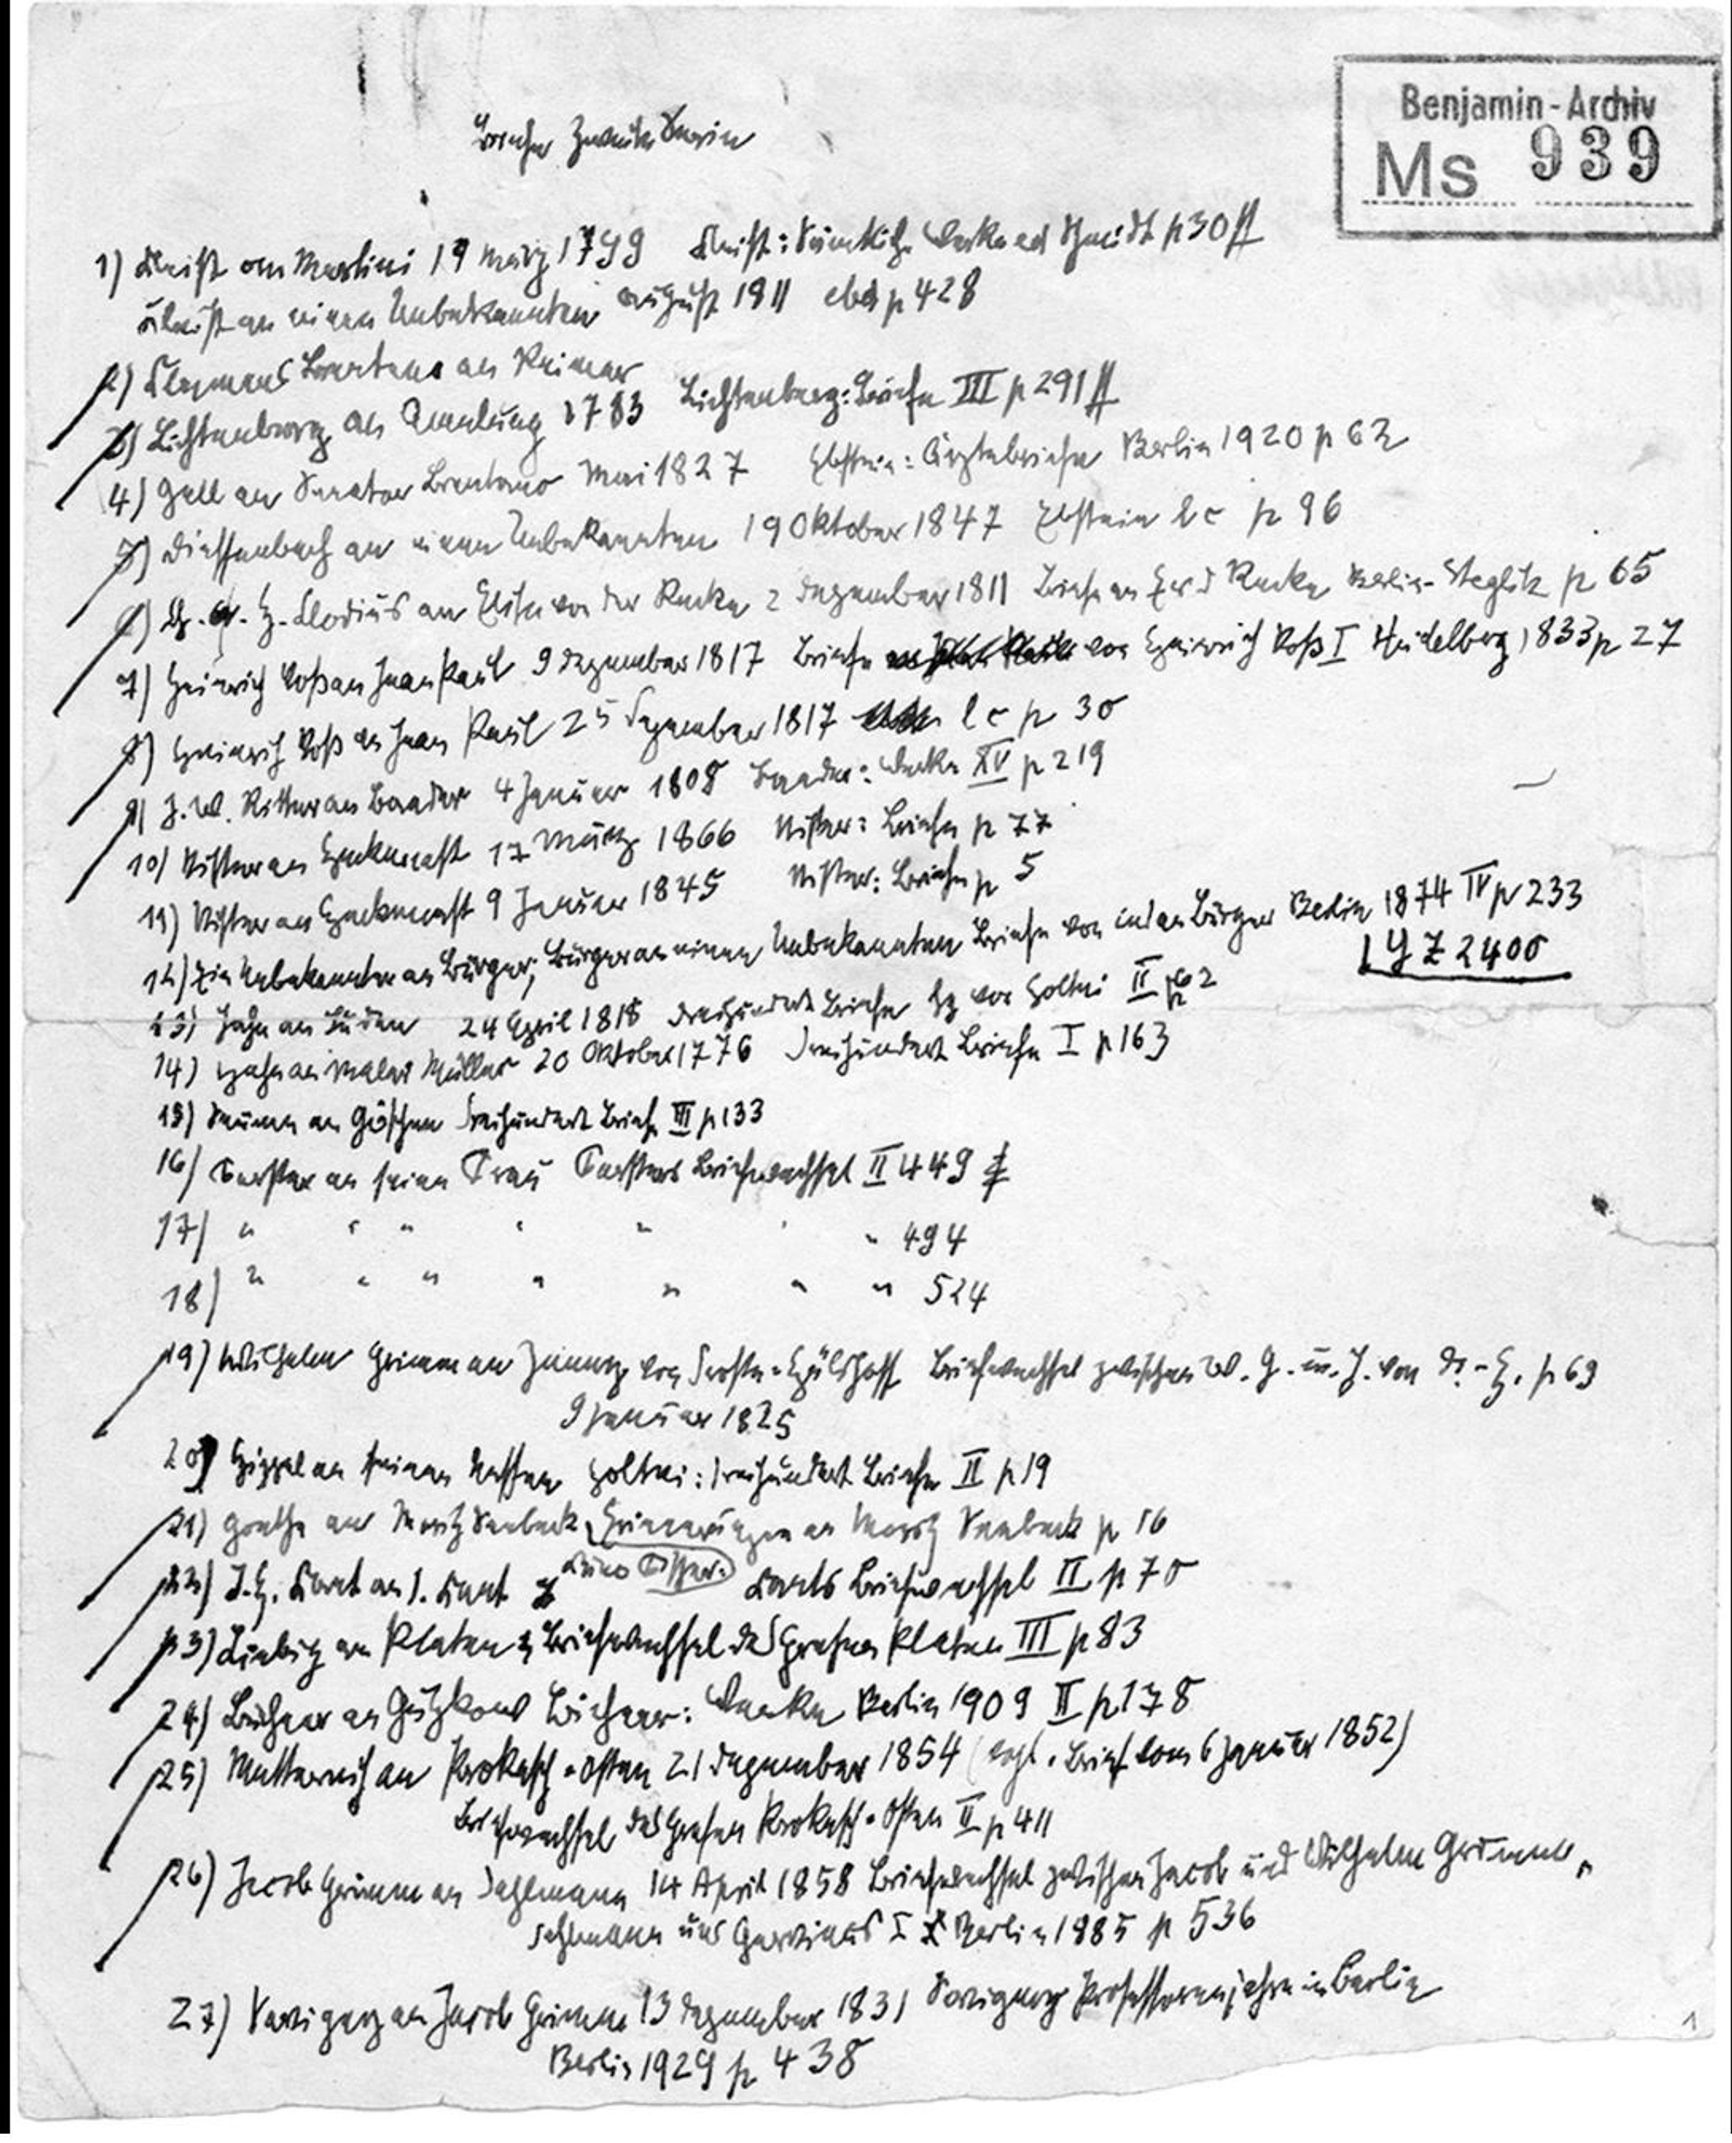 Benjamin-Archiv
Ms 939
Briefe Zweite Serie
1) Kleist an Martini 19 März 1799 Kleist: Sämtliche Werke ed Schmidt p 30 ff
Kleist an einen Unbekannten August 1811 ebd p 428
2) Clemens Brentano an Reimer
3) Lichtenberg an Amelung 1783 Lichtenberg: Briefe III p 291 ff
4) Gall an Senator Brentano Mai 1827 Ebstein: Ärztebriefe Berlin 1920 p 62
5) Dieffenbach an einen Unbekannten 19 Oktober 1847 Ebstein l c p 96
6) H. Clodius an Elisa von der Recke 2 Dezember 1811 Briefe an E v d Recke Berlin-Steglitz p 65
7) Heinrich Voß an Jean Paul 9 Dezember 1817 Briefe von Heinrich Voß I Heidelberg 1833 p 27
8) Heinrich Voß an Jean Paul 25 Dezember 1817 l c p 30
9) J. W. Ritter an Baader 4 Januar 1808 Baader: Werke XV p 219
10) 17 März 1866 Briefe p 77
11) 9 Januar 1845 Briefe p 5
12) Ein Unbekannter an Bürger; Bürger an einen Unbekannten Briefe von und an Bürger Berlin 1874 IV p 233
| Y Z 2400
13) Jahn an Luden 24 April 1818 Dreihundert Briefe hg von Holtei II p 62
14) Hahn an Maler Müller 20 Oktober 1776 Dreihundert Briefe I p 163
15) Seume an Göschen Dreihundert Briefe III p 133
16) Forster an seine Frau Forsters Briefwechsel II 449
17) " " " " " " " 494
18) " " " " " " " 524
19) Wilhelm Grimm an Jenny von Droste-Hülshoff Briefwechsel zwischen W. G. u. J. von Dr.-H. p 69
9 Januar 1825
20) Hippel an seinen Neffen Holtei: Dreihundert Briefe II p 19
21) Goethe an Moritz Seebeck Erinnerungen an Moritz Seebeck p 16
22) J. H. Kant an I. Kant Kuno Fischer. Kants Briefwechsel II p 70
23) Liebig an Platen Briefwechsel des Grafen Platen III p 83
24) Büchner an Gutzkow Büchner: Werke Berlin 1909 II p 178
25) Metternich an Prokesch-Osten 21 Dezember 1854 (vgl. Brief vom 6 Januar 1852)
Briefwechsel des Grafen Prokesch-Osten II p 411
26) Jacob Grimm an Dahlmann 14 April 1858 Briefwechsel zwischen Jacob und Wilhelm Grimm,
Dahlmann und Gervinus I Berlin 1885 p 536
27) Savigny an Jacob Grimm 13 Dezember 1831 Savigny Professorenjahre in Berlin
Berlin 1929 p 438
1